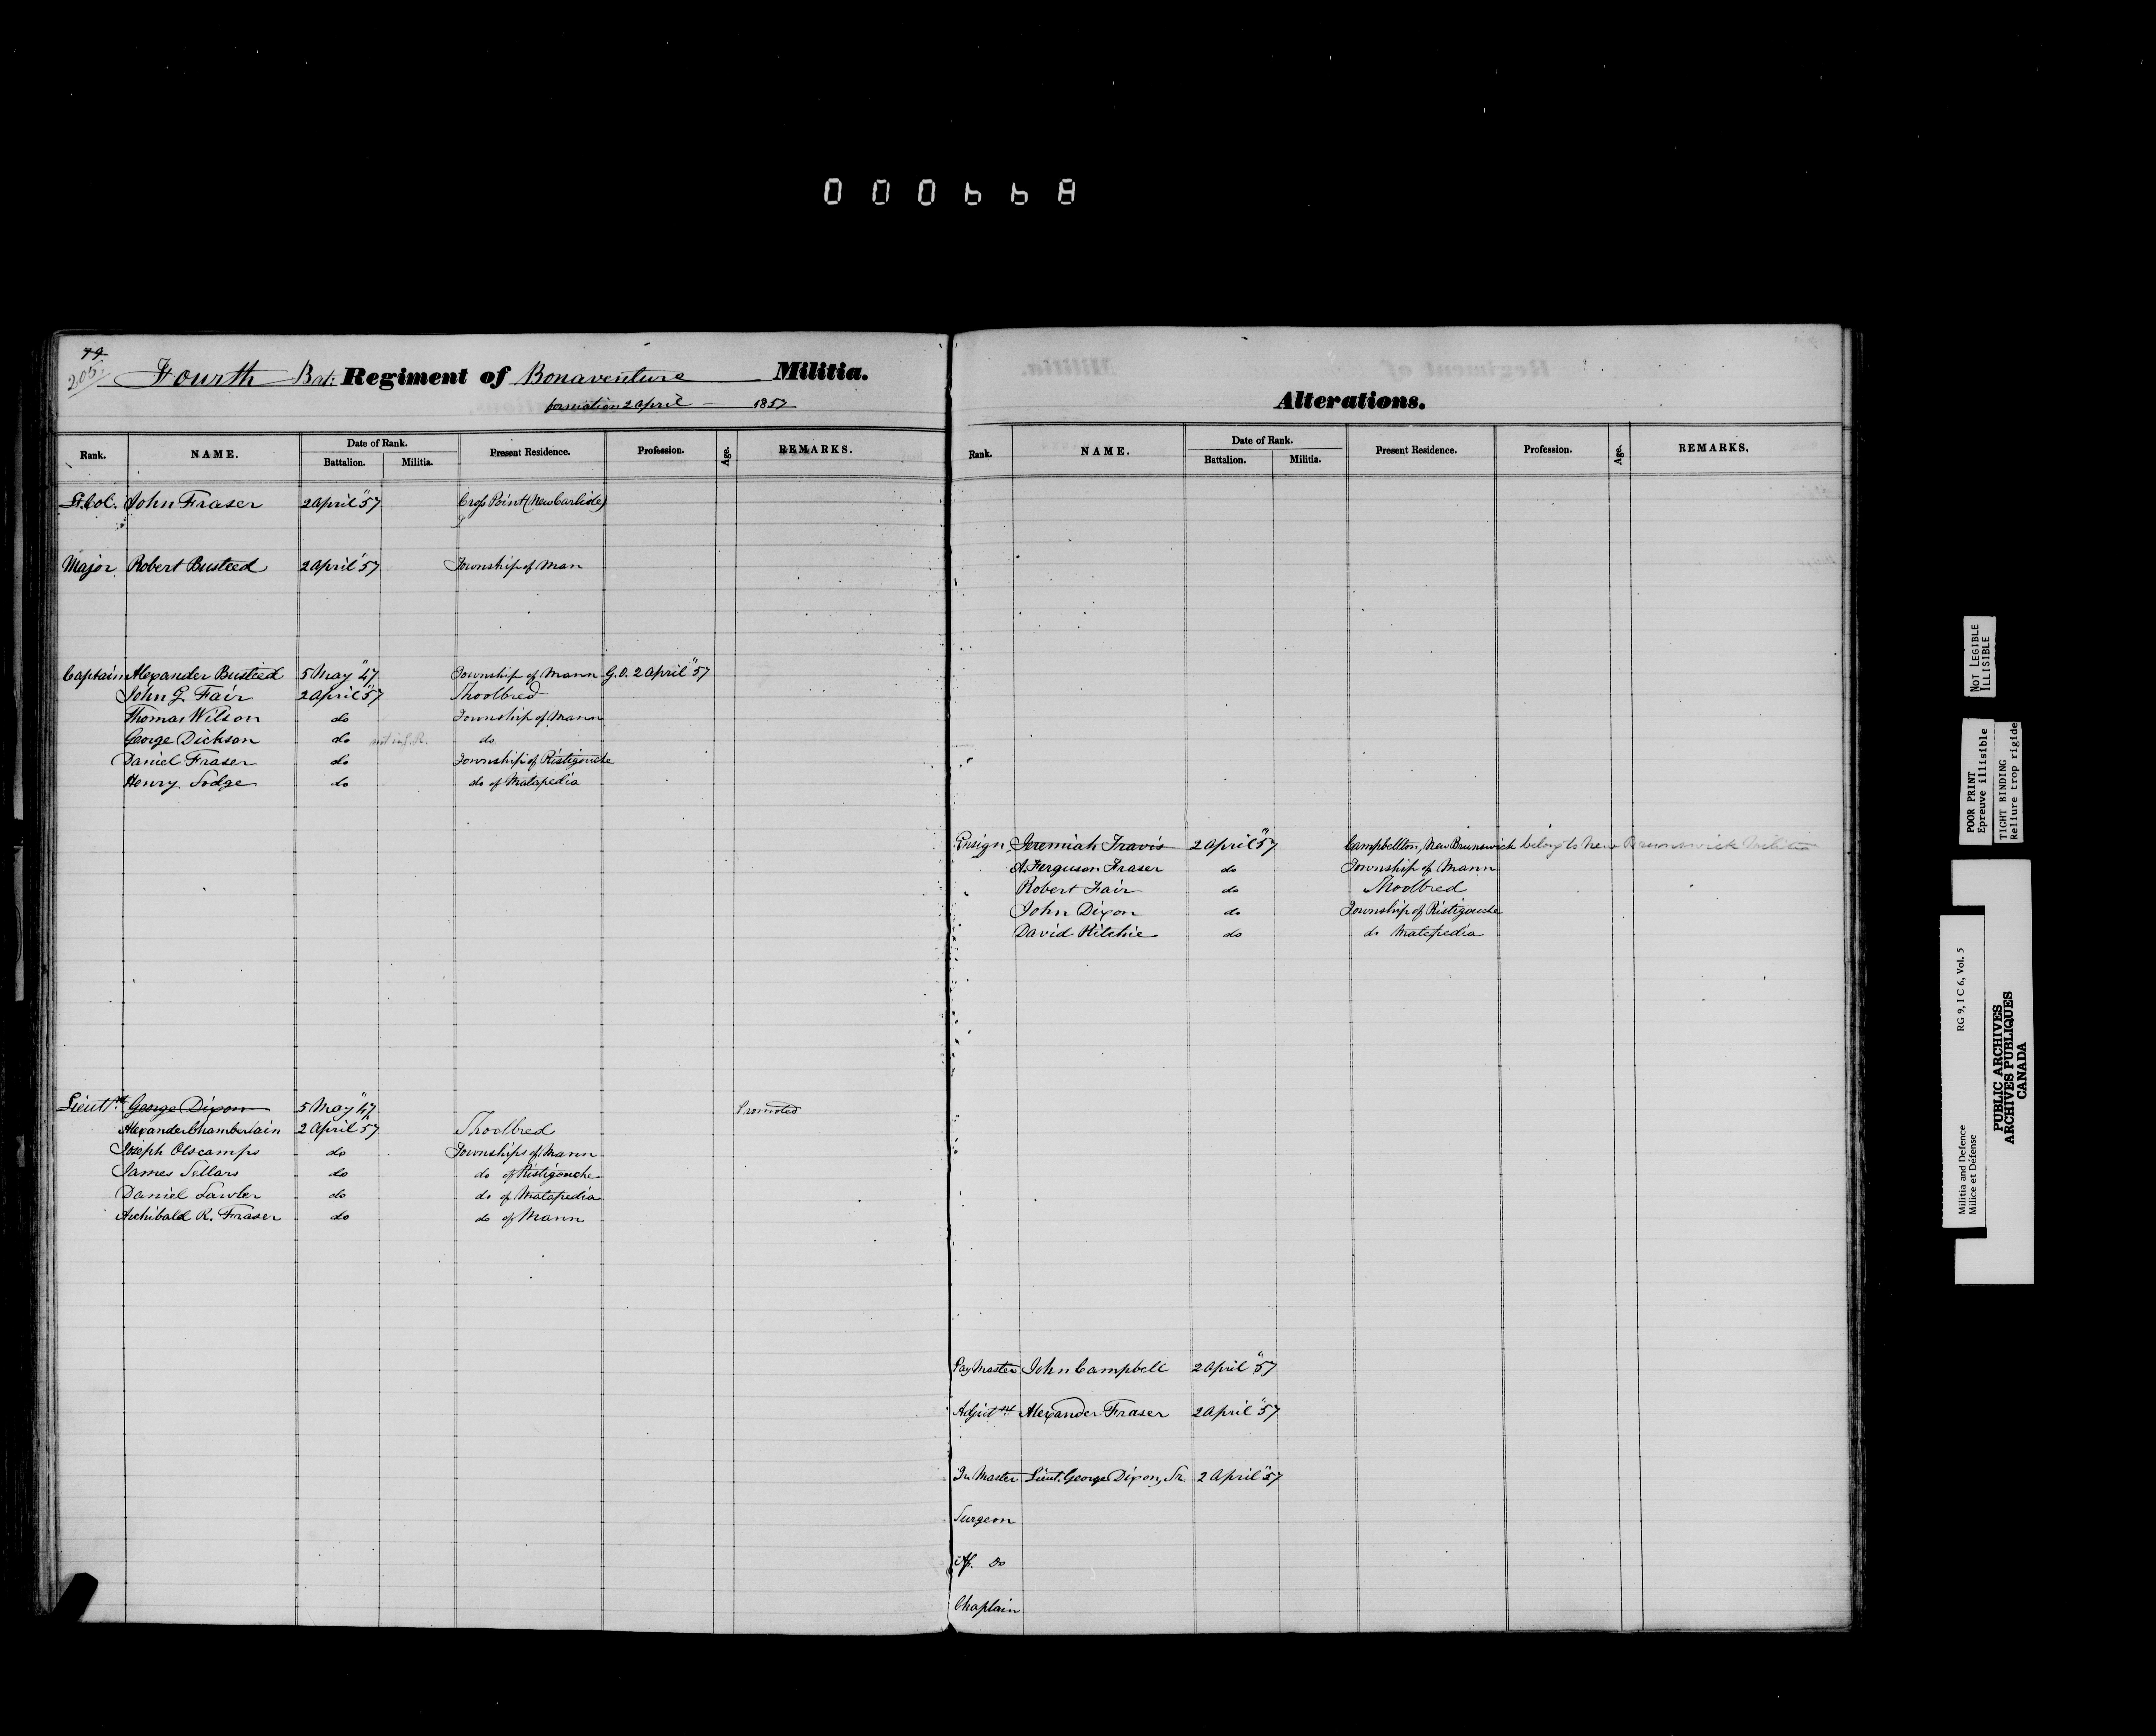 000668
79
205
Fourth Bat: Regiment of Bonaventure Militia.
formation 2 April 1857
Rank. NAME. Date of Rank. Battalion. Militia. Present Residence. Profession. Age. REMARKS.
Lt. Col. John Fraser 2 April "57 Cross Point (New Carlisle)
Major Robert Busteed 2 April "57 Township of Man
Captain Alexander Busteed 5 May "47 Township of Mann G.O. 2 April "57
John G. Fair 2 April "57 Shoolbred
Thomas Wilson do Township of Mann
George Dickson do do
Daniel Fraser do Township of Ristigouche
Henry Lodge do do of Matapedia
Lieut.nt George Dixon 5 May "47 Promoted
Alexander Chamberlain 2 April "57 Shoolbred
Joseph Olscamps do Townships of Mann
James Sellars do do of Ristigouche
Daniel Lawler do do of Matapedia
Archibald R. Fraser do do of Mann
Alterations.
Rank. NAME. Date of Rank. Battalion. Militia. Present Residence. Profession. Age. REMARKS.
Ensign Jeremiah Travis 2 April "57 Campbellton, New Brunswick belongs to New Brunswick Militia
A. Ferguson Fraser do Township of Mann
Robert Fair do Shoolbred
John Dixon do Township of Ristigouche
David Ritchie do do Matepedia
Pay Master John Campbell 2 April "57
Adjut.nt Alexander Fraser 2 April "57
Qr. Master Lieut. George Dixon, Sr. 2 April "57
Surgeon
As. Do
Chaplain
NOT LEGIBLE
ILLISIBLE
POOR PRINT
Epreuve illisible
TIGHT BINDING
Reliure trop rigide
Militia and Defence RG 9, I C 6, Vol. 5
Milice et Défense
PUBLIC ARCHIVES
ARCHIVES PUBLIQUES
CANADA